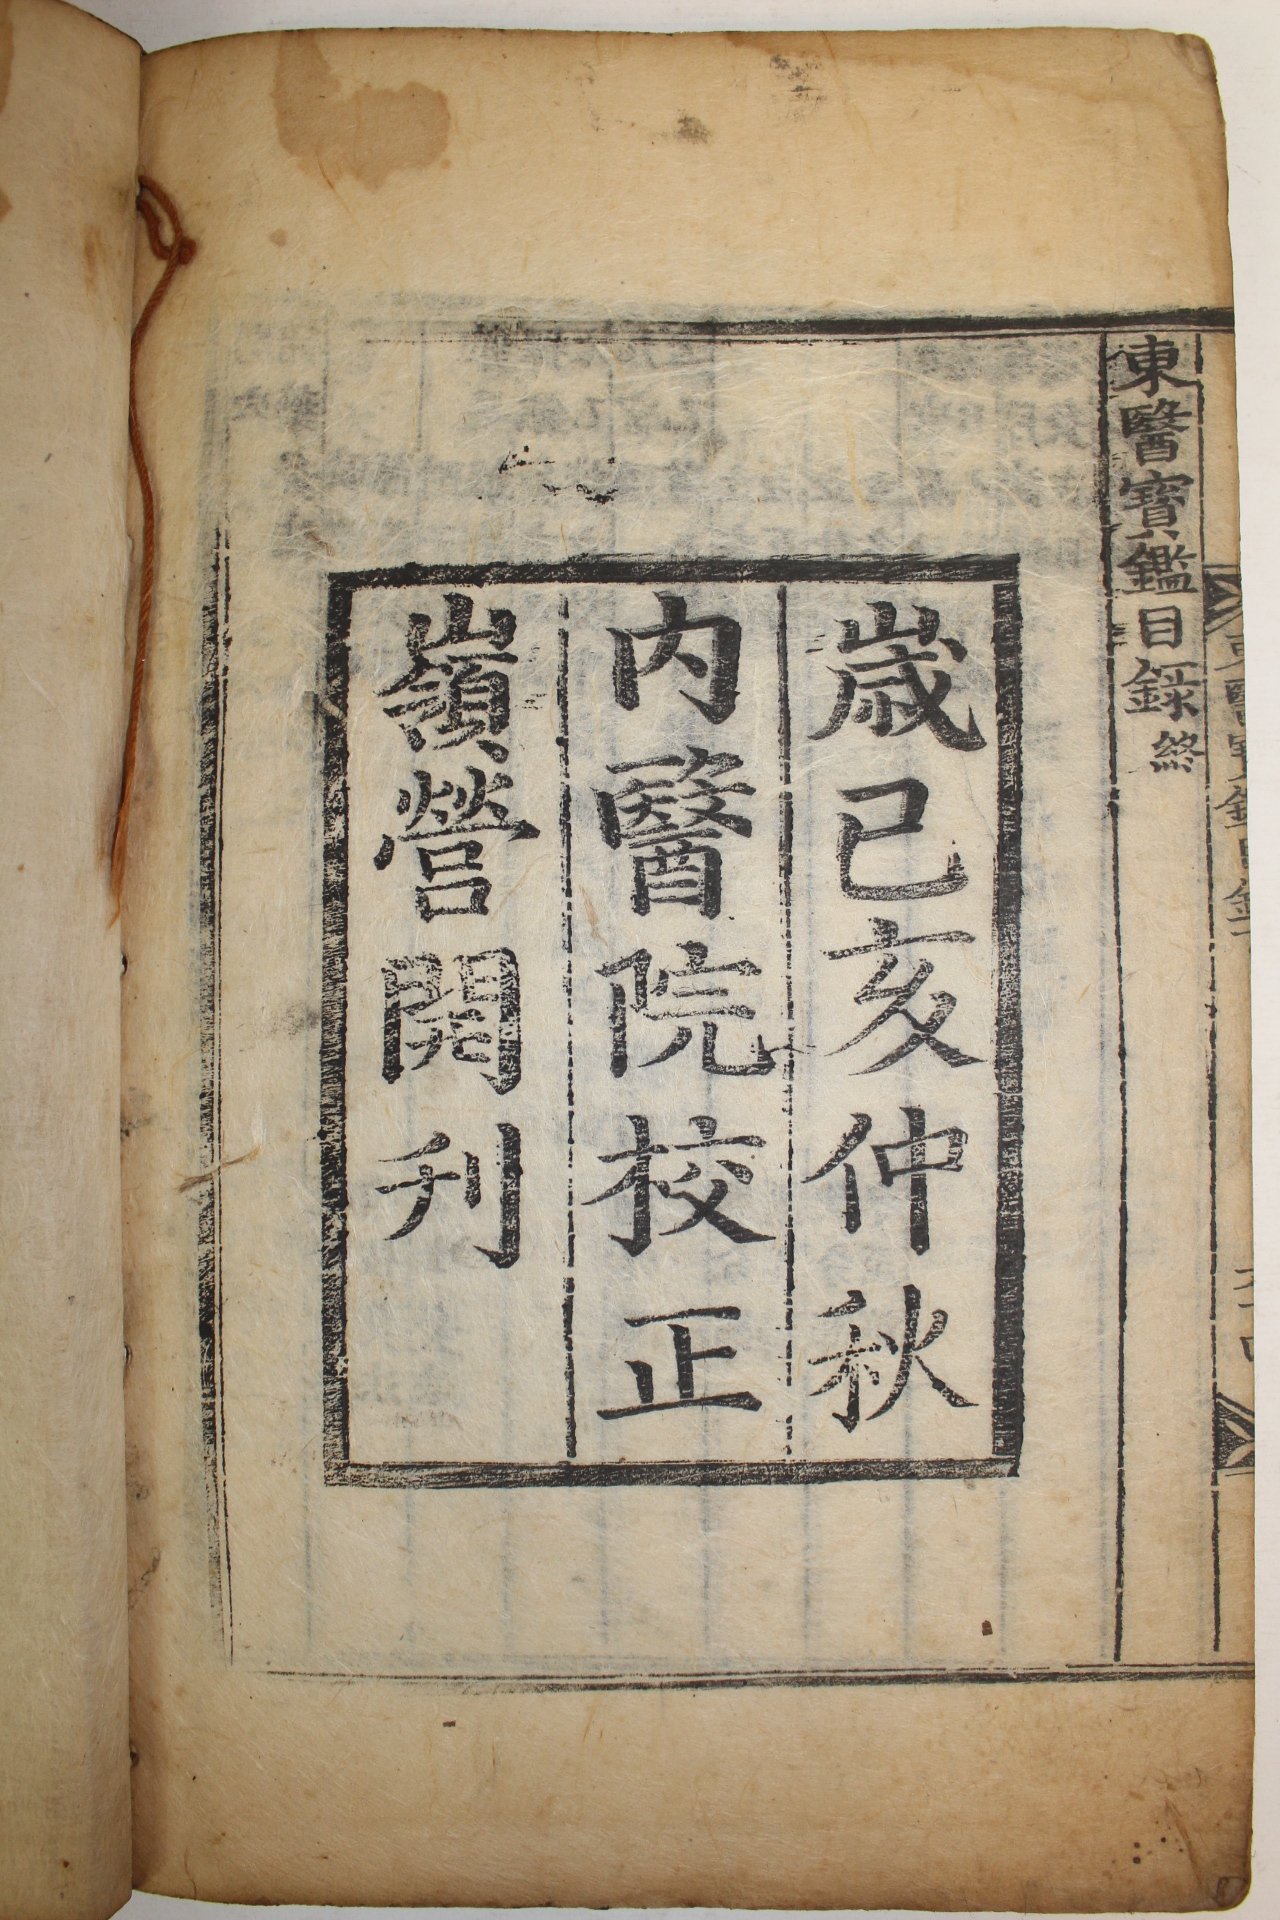 東醫寶鑑目録終
歲己亥仲秋
內醫院校正
嶺營開刋